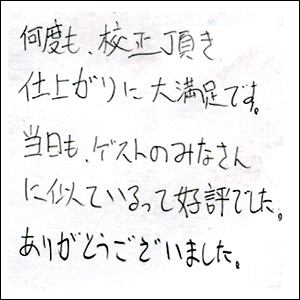 何度も、校正頂き
仕上がりに大満足です。
当日も、ゲストのみなさん
に似ているって好評でした。
ありがとうございました。